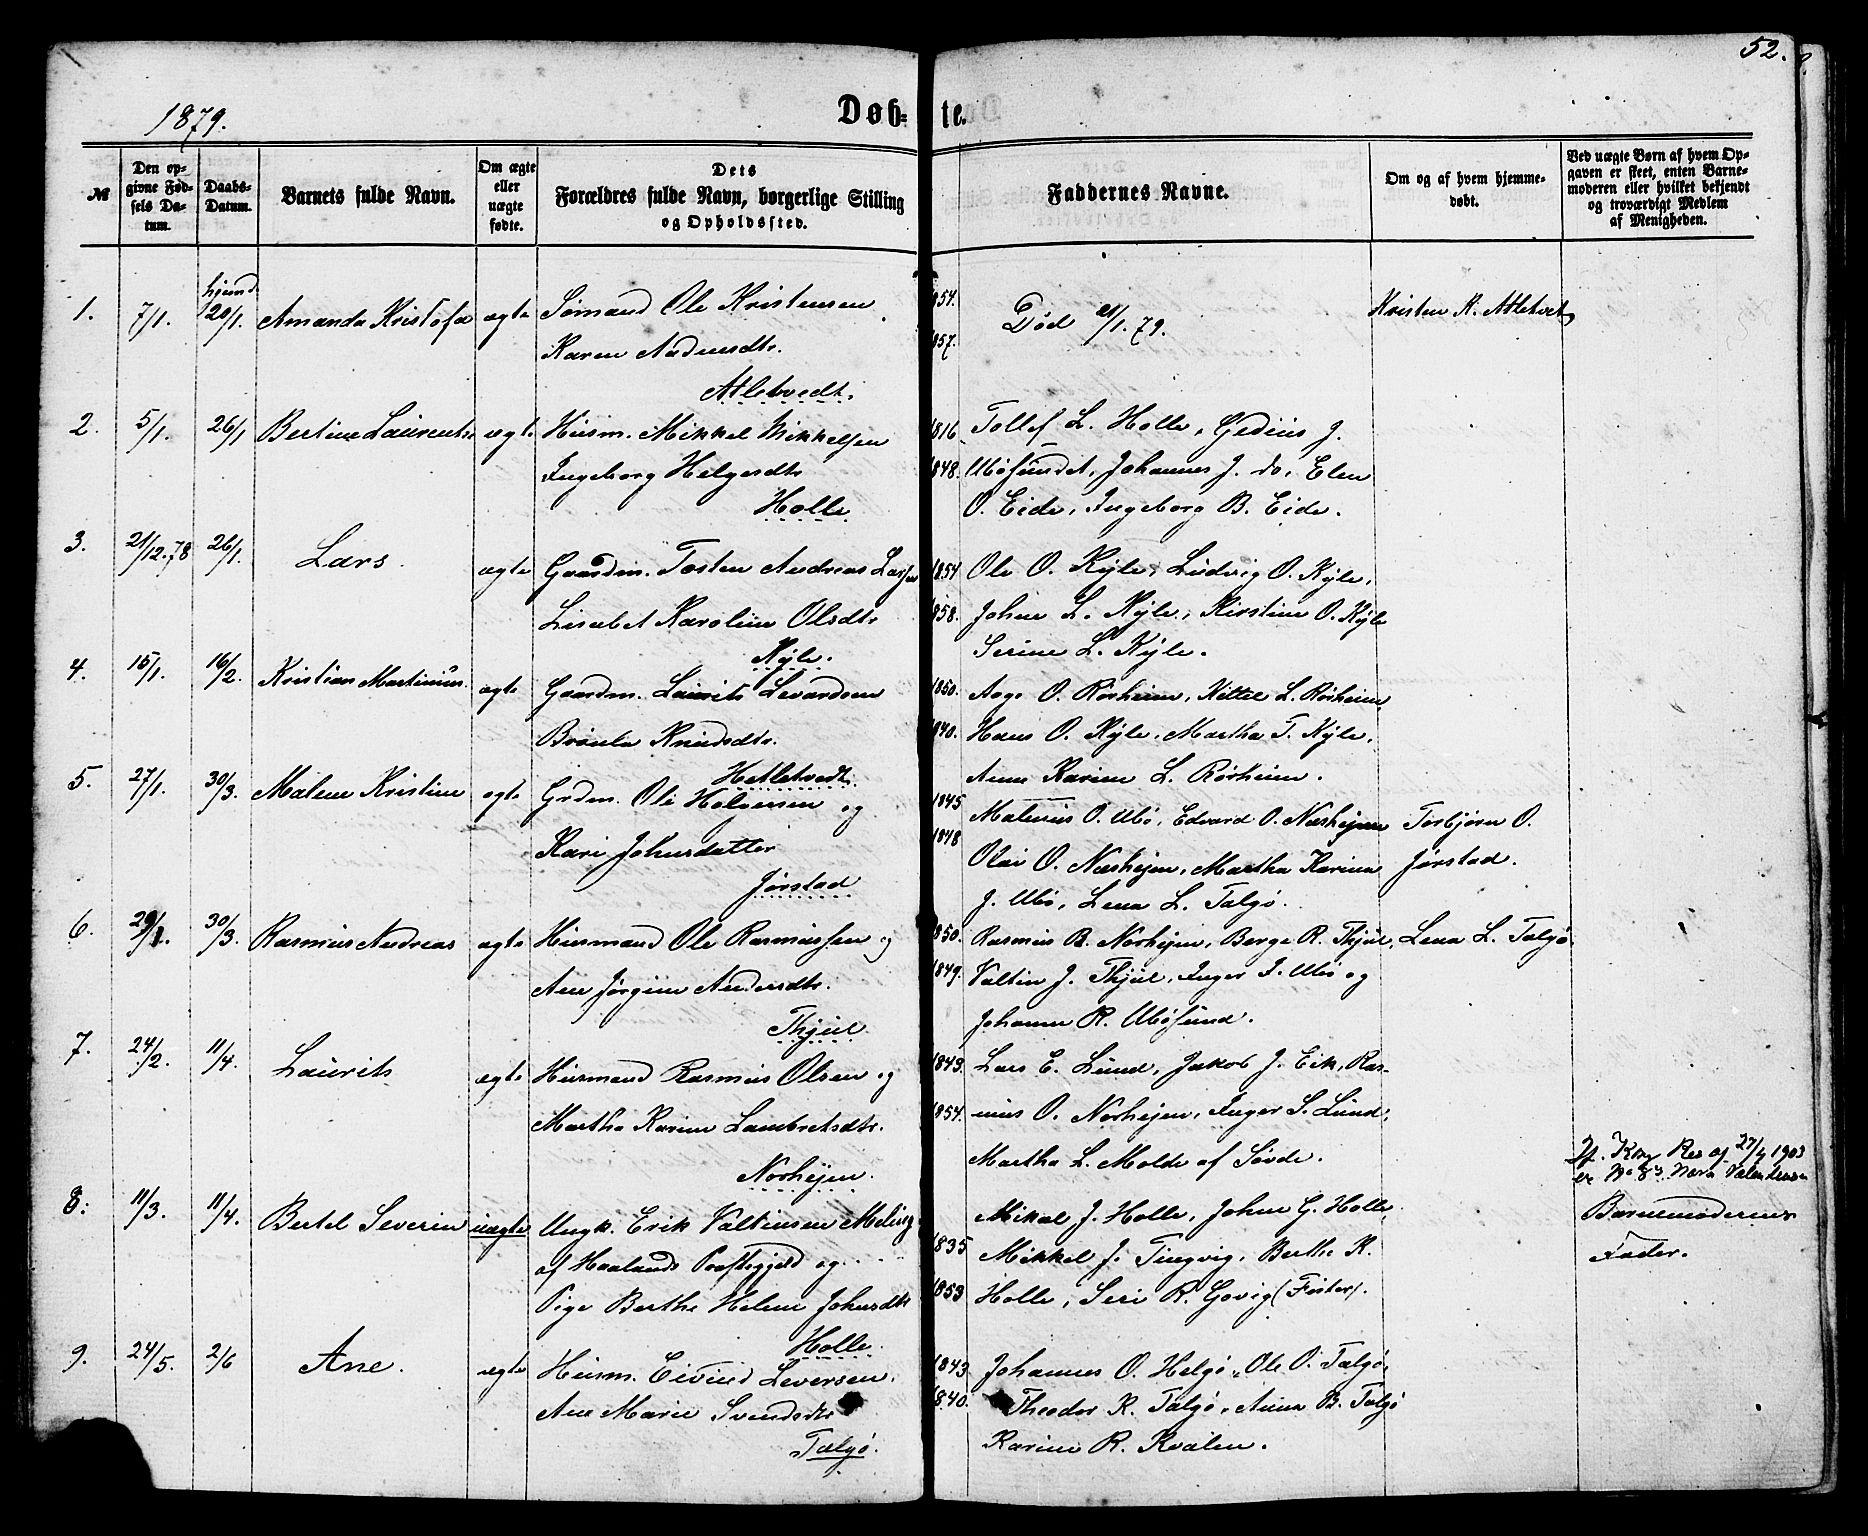 52.
1879.
Døb=te.
№
Den op=
givne Fød=
sels Da=
tum.
Daabs=
Datum.
Barnets fulde Navn.
Om ægte
eller
uægte
fødte.
Dets
Forældres fulde Navn, borgerlige Stilling
og Opholdssted.
Faddernes Navne.
Om og af hvem hjemme=
døbt.
Ved uægte Børn af hvem Op=
gaven er skeet, enten Barne=
moderen eller hvilket bekjendt
og troværdigt Medlem
af Menigheden.
1. 7/1. hjemd. 20/1. Amanda Kristofa ægte Sømand Ole Kristensen 1854. Død 21/1. 79. Kristen K. Atletvet
Karen Andersdtr. 1857.
Atletvedt.
2. 5/1. 26/1 Bertine Laurentse ægte Husm. Mikkel Mikkelsen 1816. Tollef L. Holle, Gedius J.
Ingeborg Helgesdtr 1848. Ubøsundet, Johannes J. do, Elen
Holle O. Eide, Ingeborg B. Eide.
3. 21/12. 78 26/1. Lars ægte Gaardm. Tosten Andreas Larsen 1854 Ole O. Kyle, Ludvig O. Kyle,
Lisabet Karoline Olsdtr 1858. Johne L. Kyle, Kirstine O. Kyle
Kyle. Serine L. Kyle.
4. 15/1. 16/2. Kristian Martinius. ægte Gaardm. Laurits Levardsen 1850. Aage O. Rørheim, Kittel L. Rørheim
Brønla Knudsdtr. 1840. Hans O. Kyle, Martha T. Kyle,
Hetletvedt Anne Karine L. Rørheim.
5. 27/1. 30/3. Malene Kristine ægte Grdm. Ole Halvorsen og 1845 Matenius O. Ubø, Edvard O. Næshejen Torbjørn O.
Kari Johnsdatter 1848 Olai O. Næshejen, Martha Karine Jørstad.
Jørstad J. Ubø, Lena L. Talgø.
6. 29/1. 30/3. Rasmus Andreas ægte Husmand Ole Rasmussen og 1850. Rasmus B. Norhejen, Børge R. Thjul, Lena L. Talgø.
Ane Jørgine Andersdtr. 1849. Valtin J. Thjul, Inger I. Ubø og
Thjul. Johanne R. Ubøsund.
7. 24/2. 11/4. Laurits ægte Husmand Rasmus Olsen og 1843. Lars E. Lund, Jakob J. Eik, Ras-
Martha Karine Lambretsdtr. 1854. mus O. Norhejen, Inger S. Lund,
Norhejen. Martha L. Molde af Søvde.
8. 11/3. 11/4. Bertel Severin uægte Ungk. Erik Valtinsen Meling Mikal J. Holle, John G. Holle, If. Kng Res af 27/4 1903
er No 8's Navn Valentinsen
af Haalands Præstegjeld og 1835 Mikkel J. Tingvig, Berthe K. Barnemoderens
Pige Berthe Helene Johnsdtr 1853 Holle, Seri R. Govig (Foster). Fader.
Holle.
9. 24/5. 2/6 Ane. ægte Husm. Eivind Leversen, 1843 Johannes O. Helgø, Ole O. Talgø,
Ane Marie Svendsdtr 1840. Theodor K. Talgø, Anna B. Talgø
Talgø. Karine R. Kvalen.